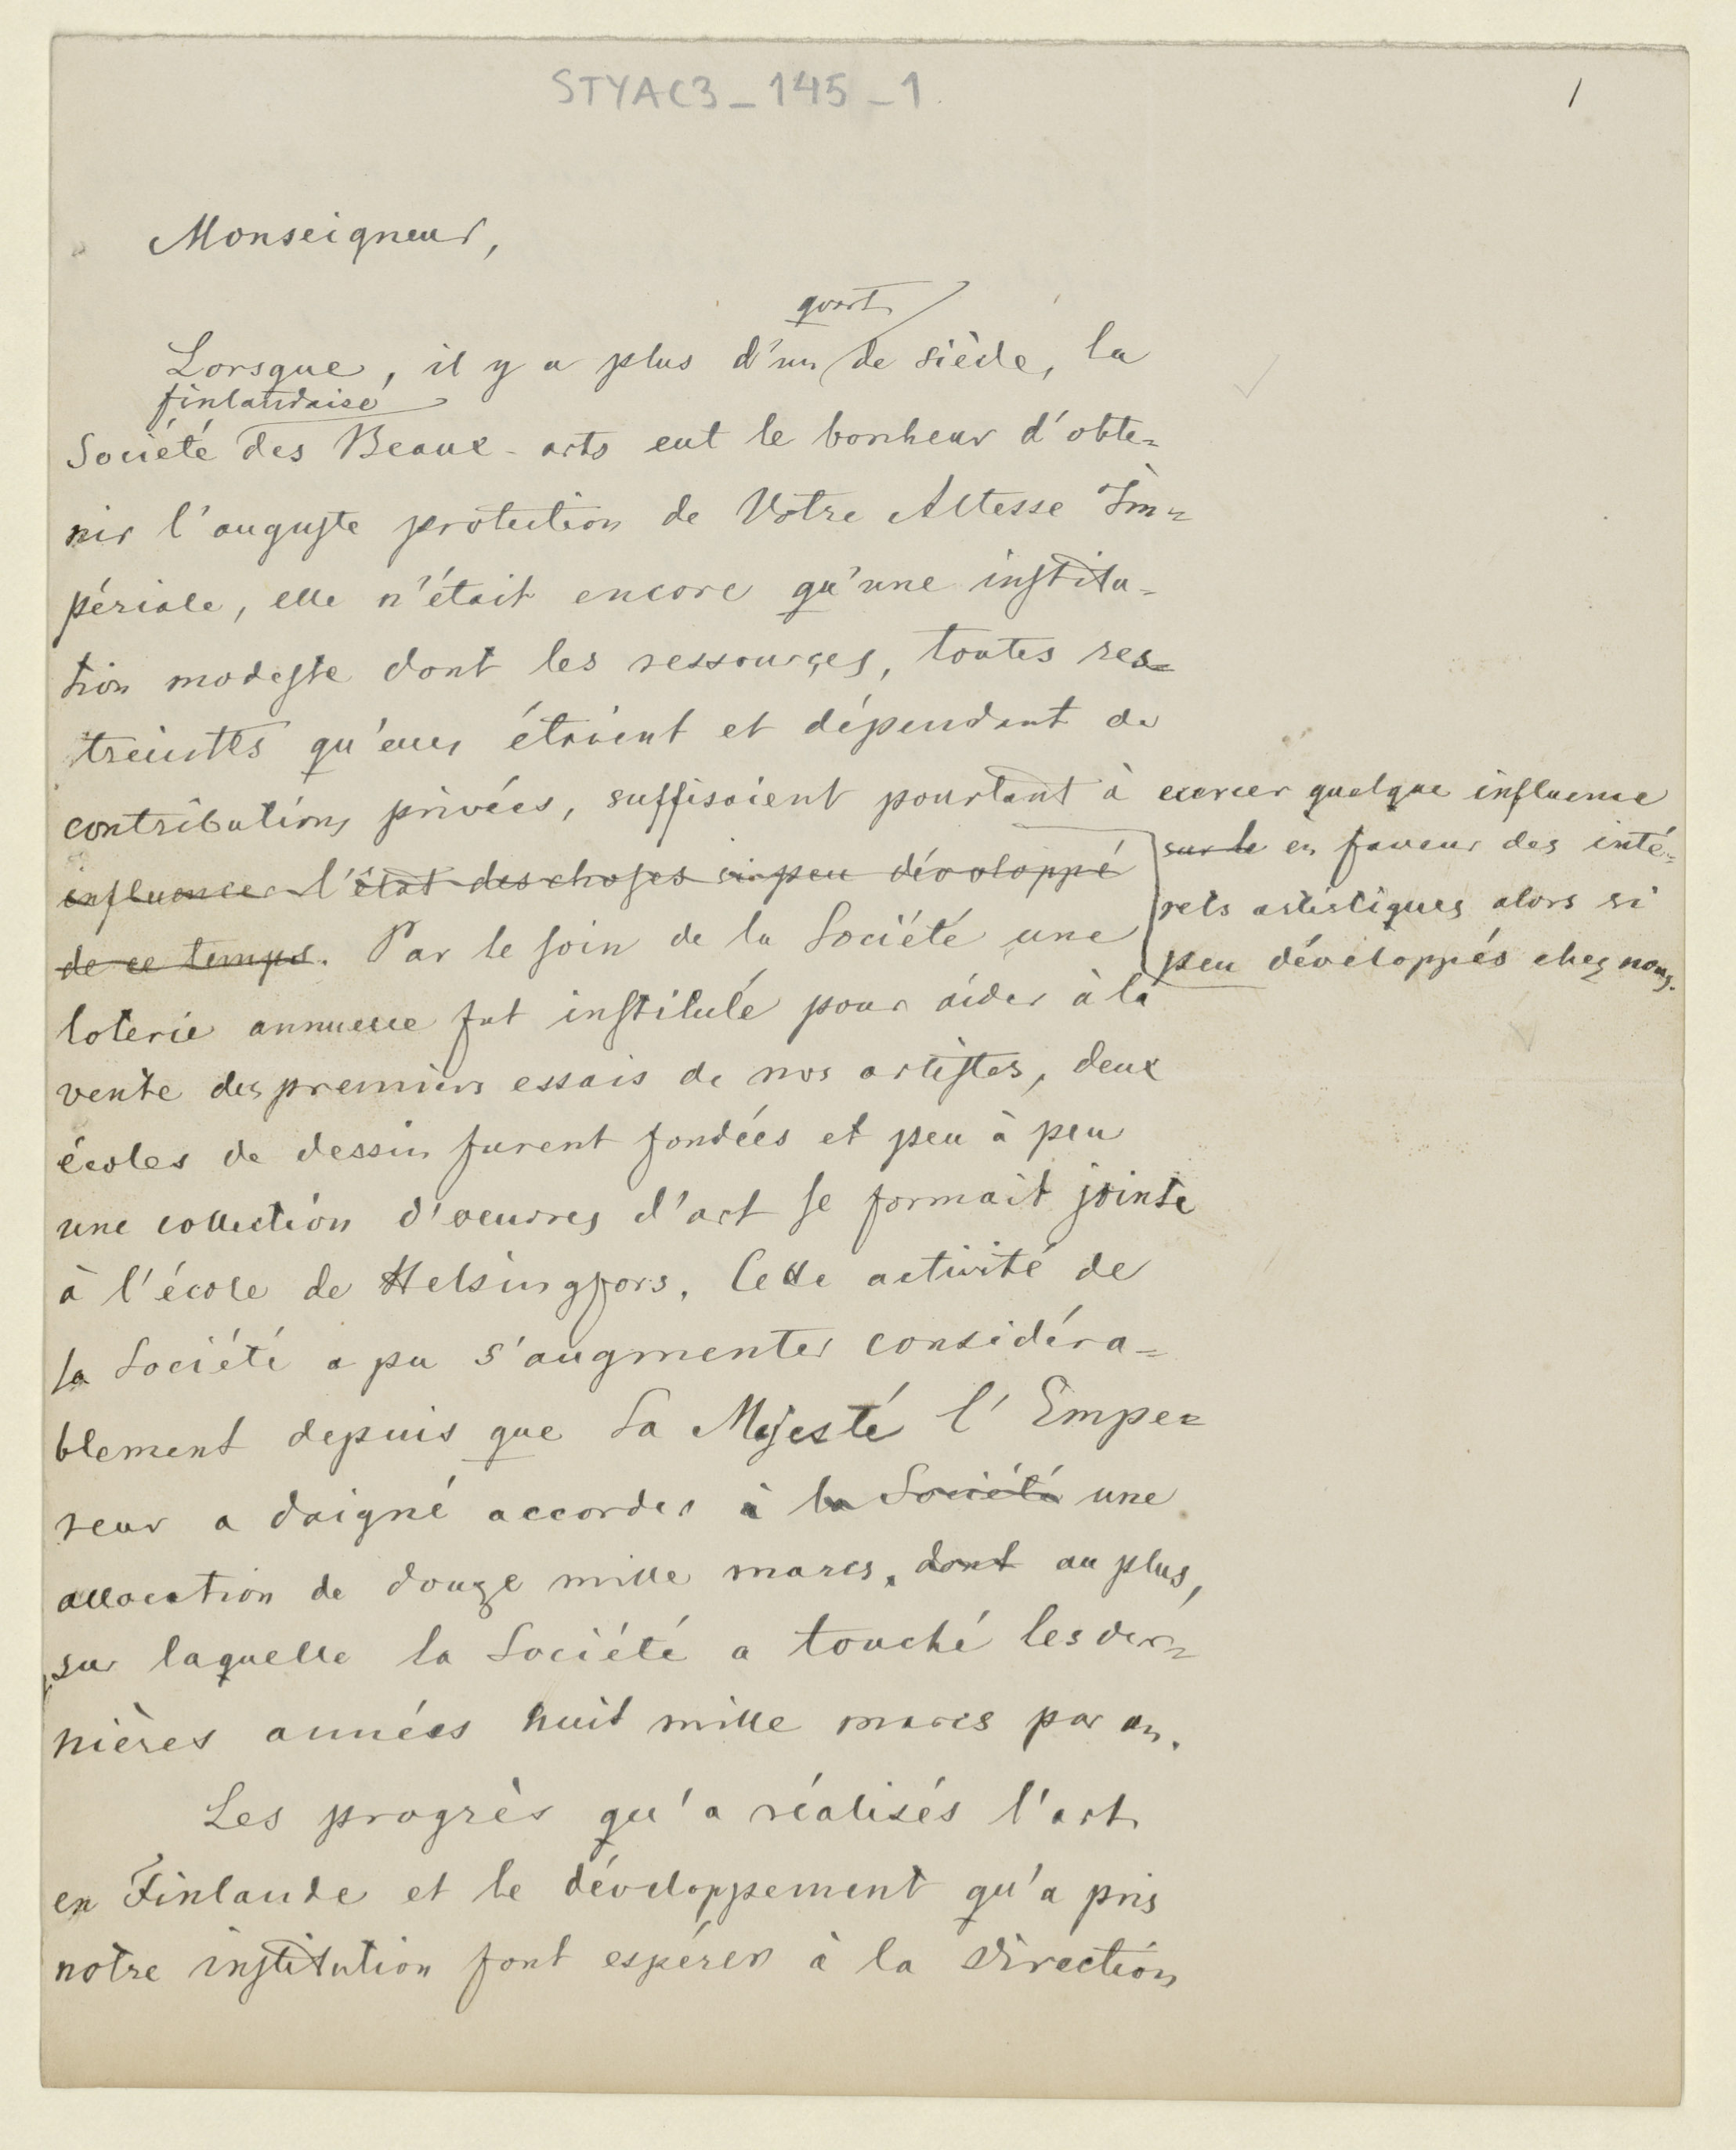 STYAC3_145_1
1
Monseigneur,
quart
Lorsque, il y a plus d'un de siècle, la
finlandaise
Société des Beaux-arts eut le bonheur d'obte=
nir l'auguste protection de Votre Altesse Im=
périale, elle n'était encore qu'une institu=
tion modeste dont les ressources, toutes res=
treintes qu'elles étaient et dépendant de
contributions privées, suffisaient pourtant à exercer quelque influence
influencer l'état des choses si peu développé
sur le en faveur des inté=
rets artistiques alors si
peu développés chez nous.
de ce temps. Par le soin de la Société une
loterie annuelle fut institulé pour aider à la
vente des premiers essais de nos artistes, deux
écoles de dessin furent fondées et peu à peu
une collection d'oeuvres d'art se formait jointe
à l'école de Helsingfors. Cette activité de
la Société a pu s'augmenter considéra=
blement depuis que Sa Majesté l'Empe=
reur a daigné accorder à la Société une
allocation de douze mille marcs, dont au plus,
sur laquelle la Société a touché les der=
nières années huit mille marcs par an.
Les progrès qu'a réalisés l'art
en Finlande et le développement qu'a pris
notre institution font espérer à la Direction